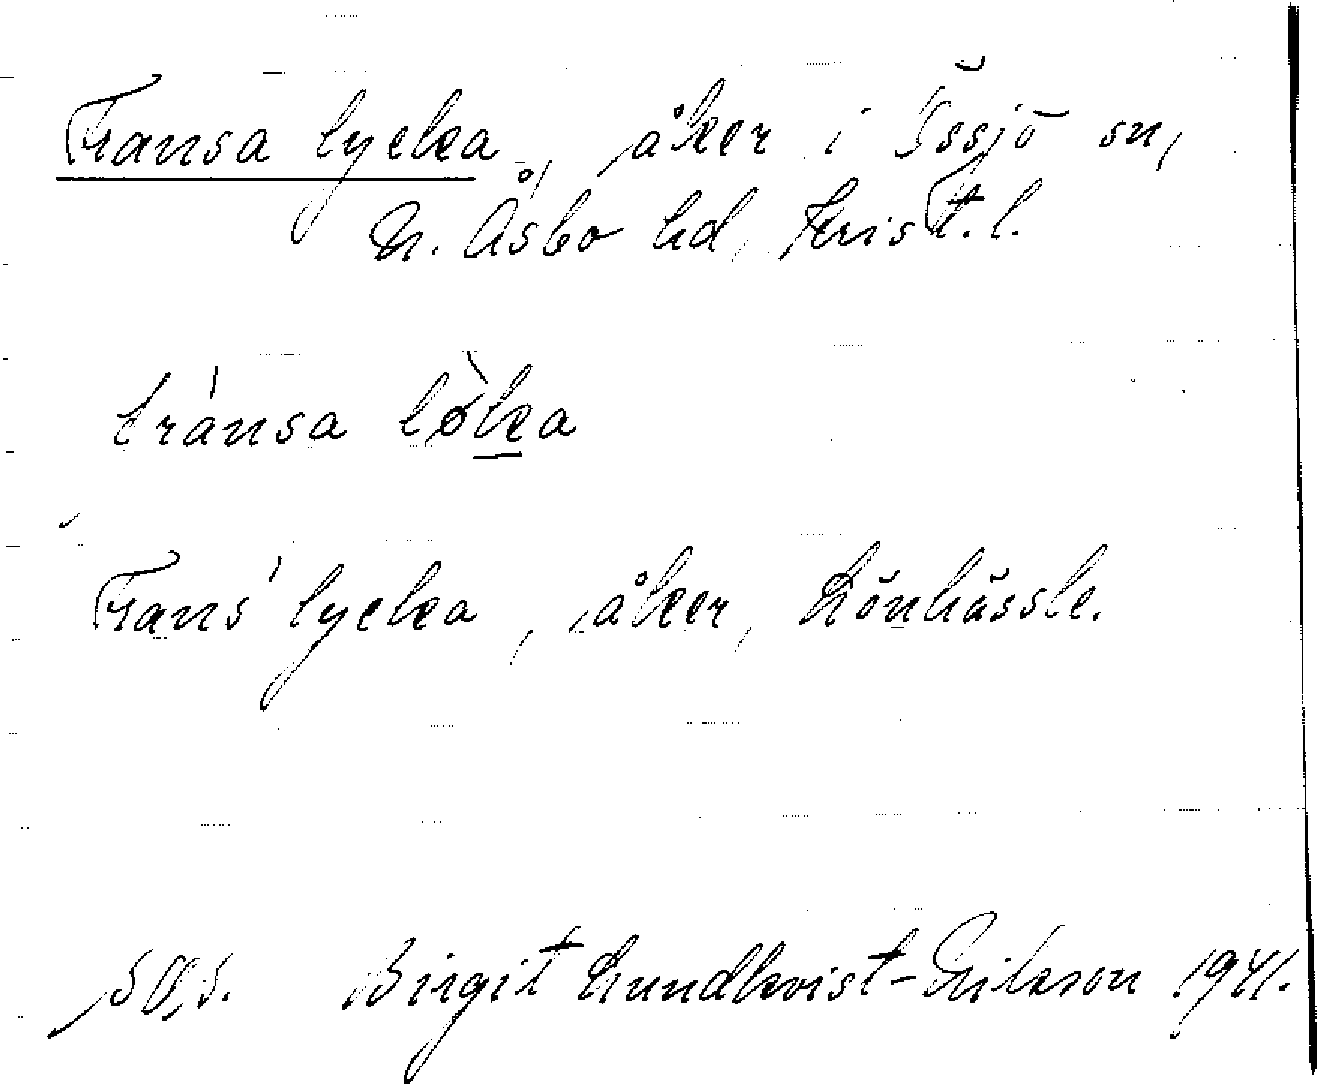 Fransa lycka, åker i Össjö sn,
N. Åsbo hd, Krist. l.
fránsa lø̀ka
Frans' lycka, åker, Lönhässle.
Birgit Lundkvist-Nilsson 1941.